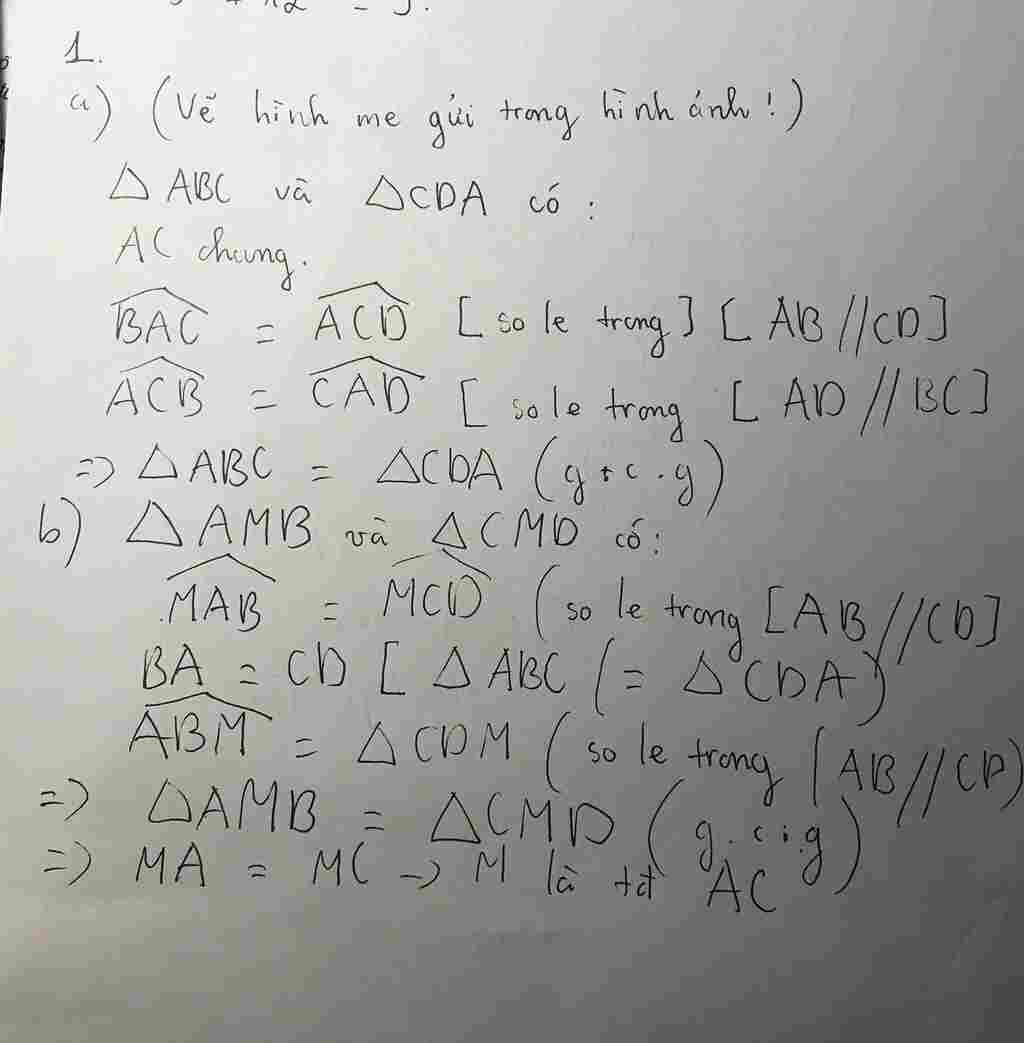 1.
a) (Vẽ hình mẹ gửi trong hình ánh!)
△ ABC và △CDA có :
AC chung.
BAC = ACD [so le trong] [AB//CD]
ACB = CAD [so le trong [AD//BC]
=> △ABC = △CDA (g.c.g)
b) △AMB và △CMD có:
MAB = MCD (so le trong [AB//CD]
BA = CD [△ABC (= △CDA)
ABM = △CDM (so le trong (AB//CD)
=> △AMB = △CMD (g.c.g)
=> MA = MC -> M là tđ AC